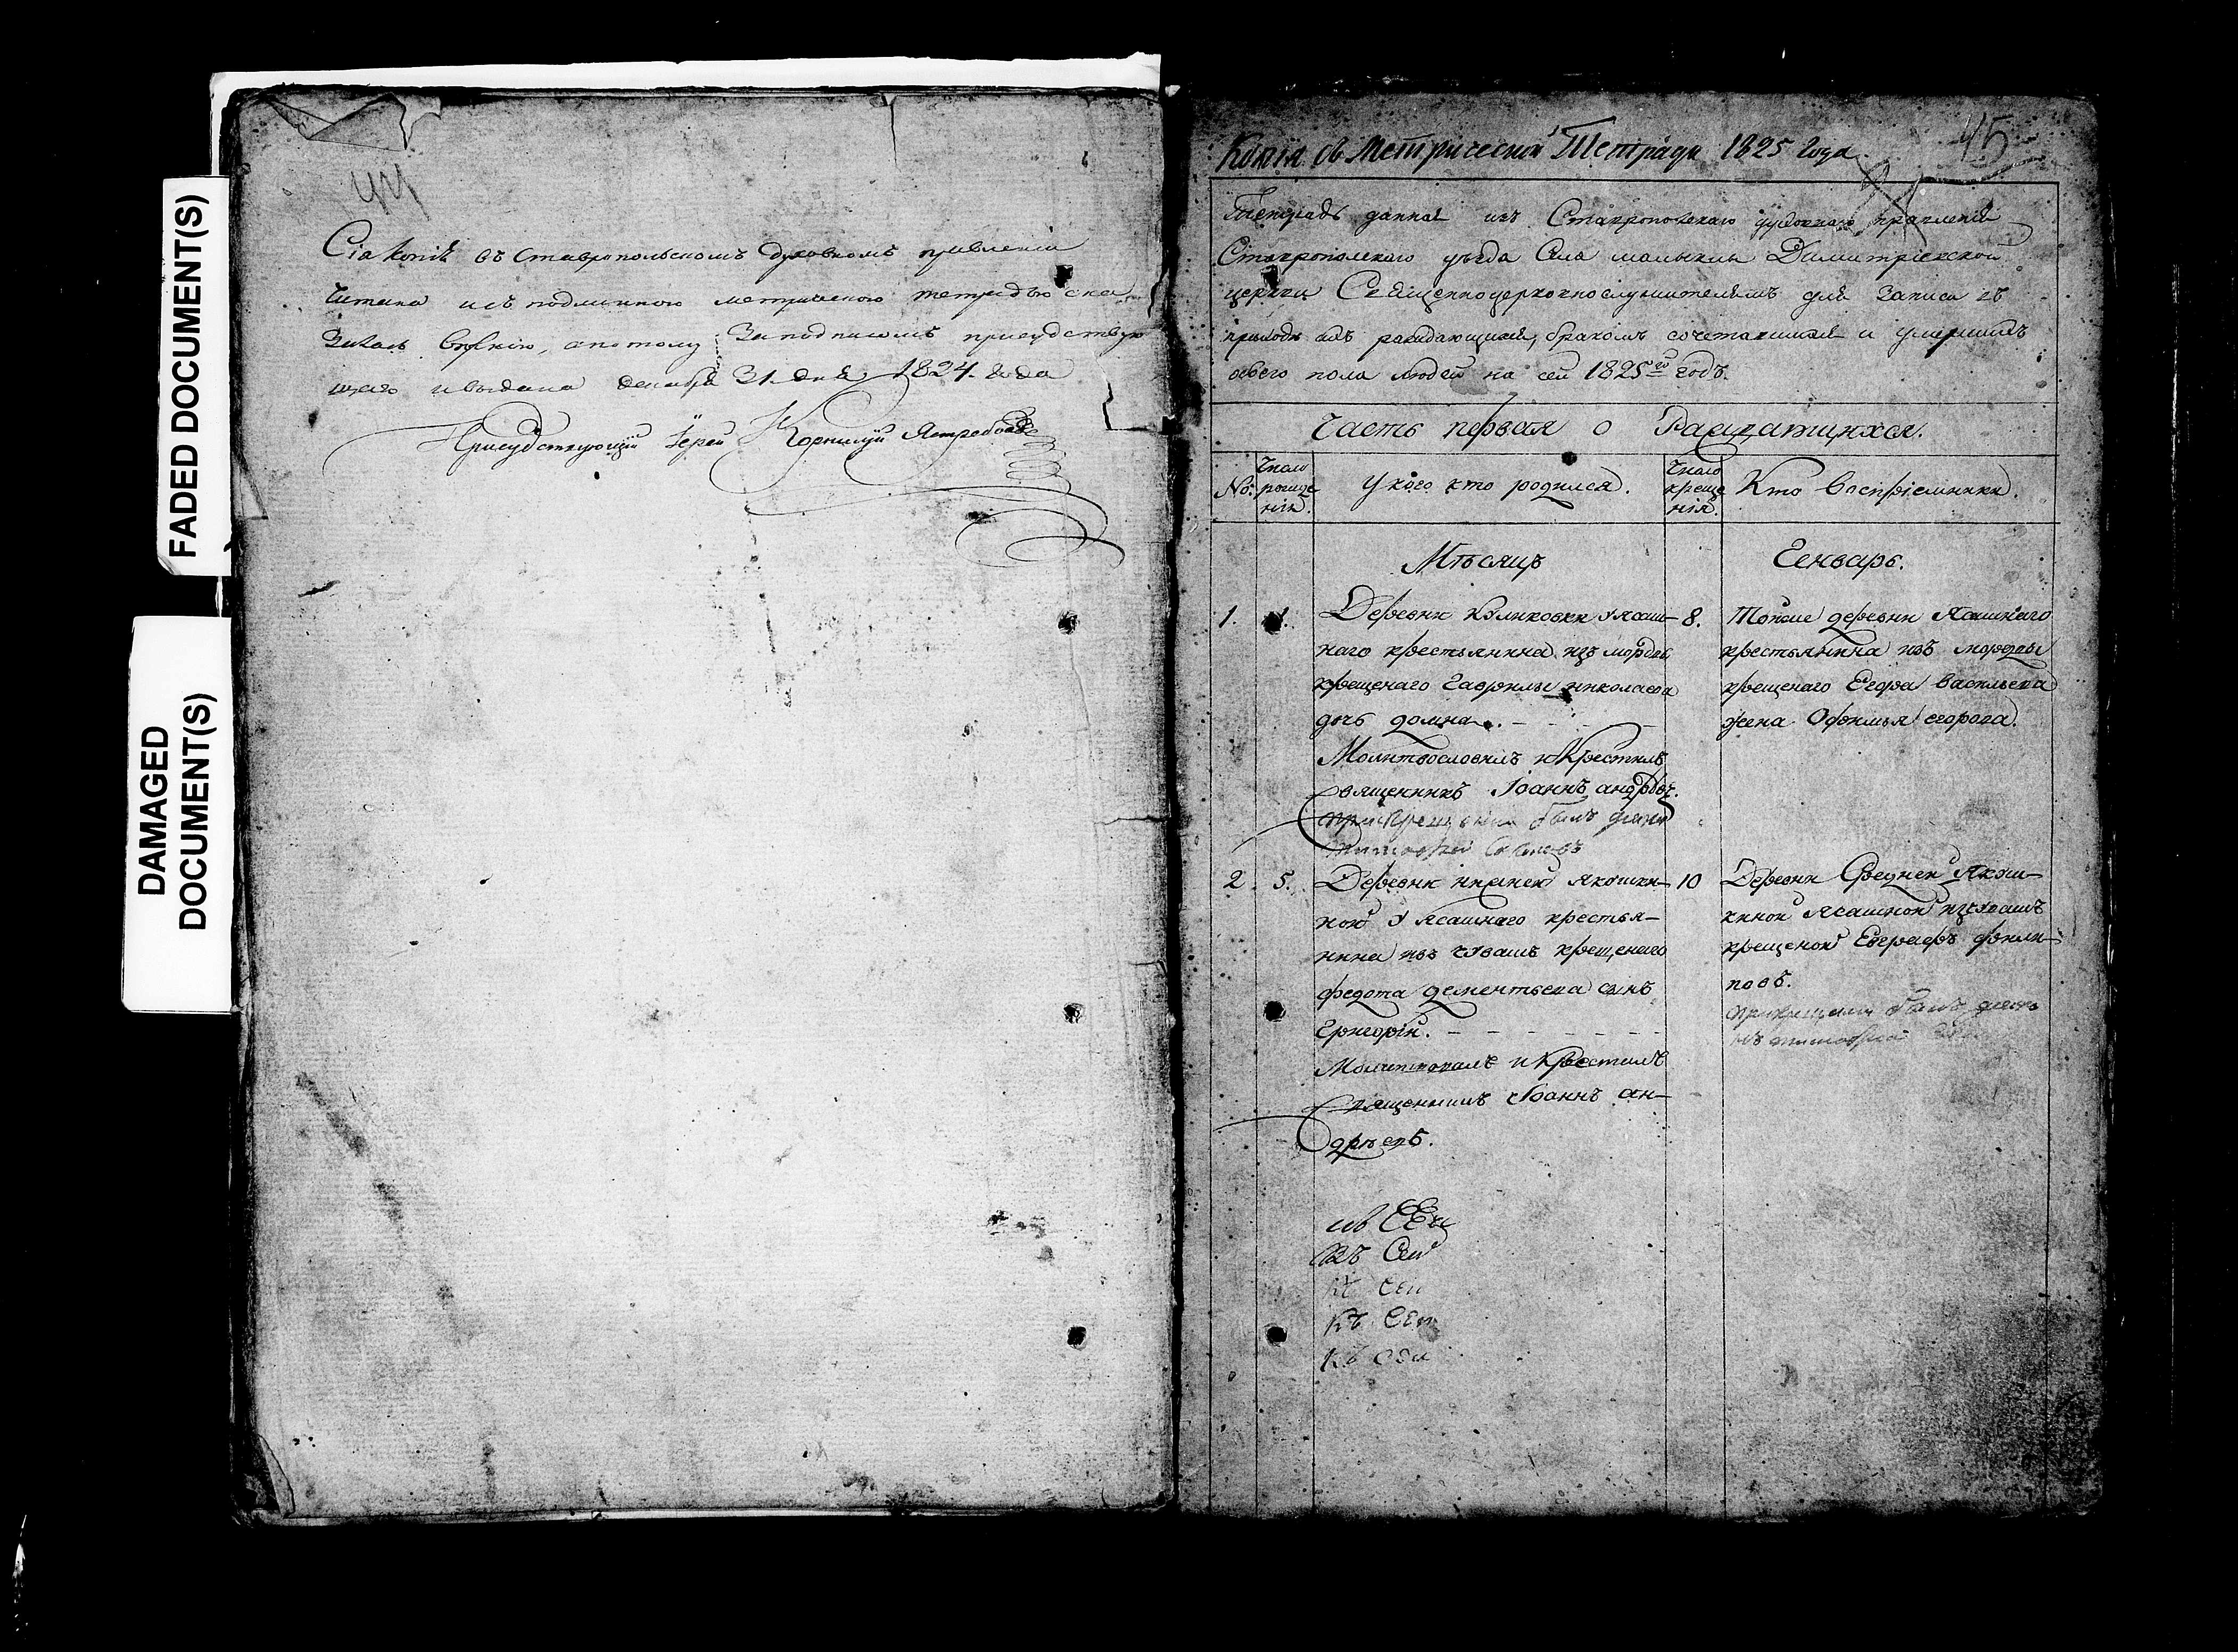 FADED DOCUMENT(S)
DAMAGED
DOCUMENT(S)
44
Сіа копіѣ въ Ставропольскомъ духовномъ правленіи
Читана и съ подлинною метрическою тетрадью ска
залась верною, а потому за подписомъ присудствую
щаго и выдана декабря 31. дня 1824. года
Присудствующій Іерей Корнилій Ястребовъ
45
Копія съ Метрической Тетради 1825 года.
Тетрадь данная изъ Ставропольскаго духовнаго правленія
Ставропольскаго уезда Села малыклы Димитріевской
церкви Священноцерковнослужителямъ для записи въ
приходе ихъ раждающихся, бракомъ сочетавшихся и умершихъ
обоего пола людей на сей 1825й годъ.
Часть первая о Раждающихся.
№.
Число рожде нія.
У кого кто родился.
Число креще нія.
Кто Воспріемники.
Мѣсяцъ
Генварь.
1.
Деревни Куликовки у ясаш-
наго крестьянина изъ мордвы
крещенаго Гаврилы николаева
дочь домна.
Молитвословилъ и Крестилъ
Священникъ Іоаннъ андрѣевъ.
при крещеніи былъ
8.
Тойже деревни Ясашнаго
крестьянина изъ мордвы
крещенаго Егора Васильева
жена Офимья егорова.
2. 5.
Деревни нижней якошки-
ной у ясашнаго крестья-
нина изъ чувашъ крещенаго
федота дементьева сынъ
Григорій.
Молитвовалъ и Крестилъ
Священникъ Іоаннъ ан-
дрѣевъ.
10
Деревни Средней Якош-
киной Ясашной изъ чувашъ
крещеной Евграфъ фили-
повъ.
при крещеніи былъ
къ Сей
къ Сей
къ Сей
къ Сей